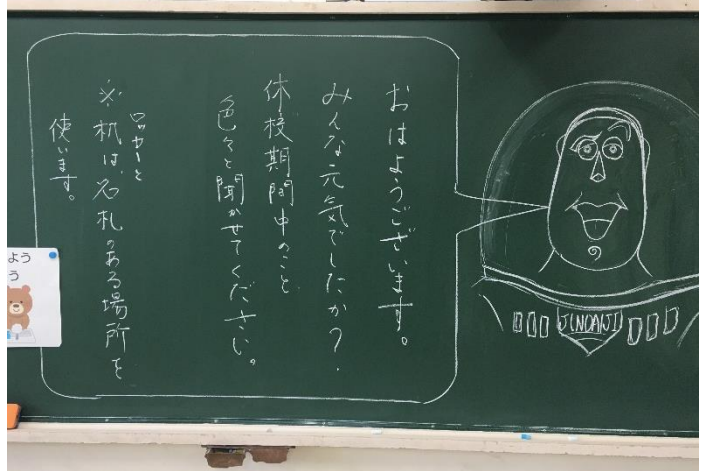 おはようございます。
みんな元気でしたか?
休校期間中のこと
色々と聞かせてください。
ロッカーと
※机は、名札のある場所を
使います。
JINDAIJI
よう
う